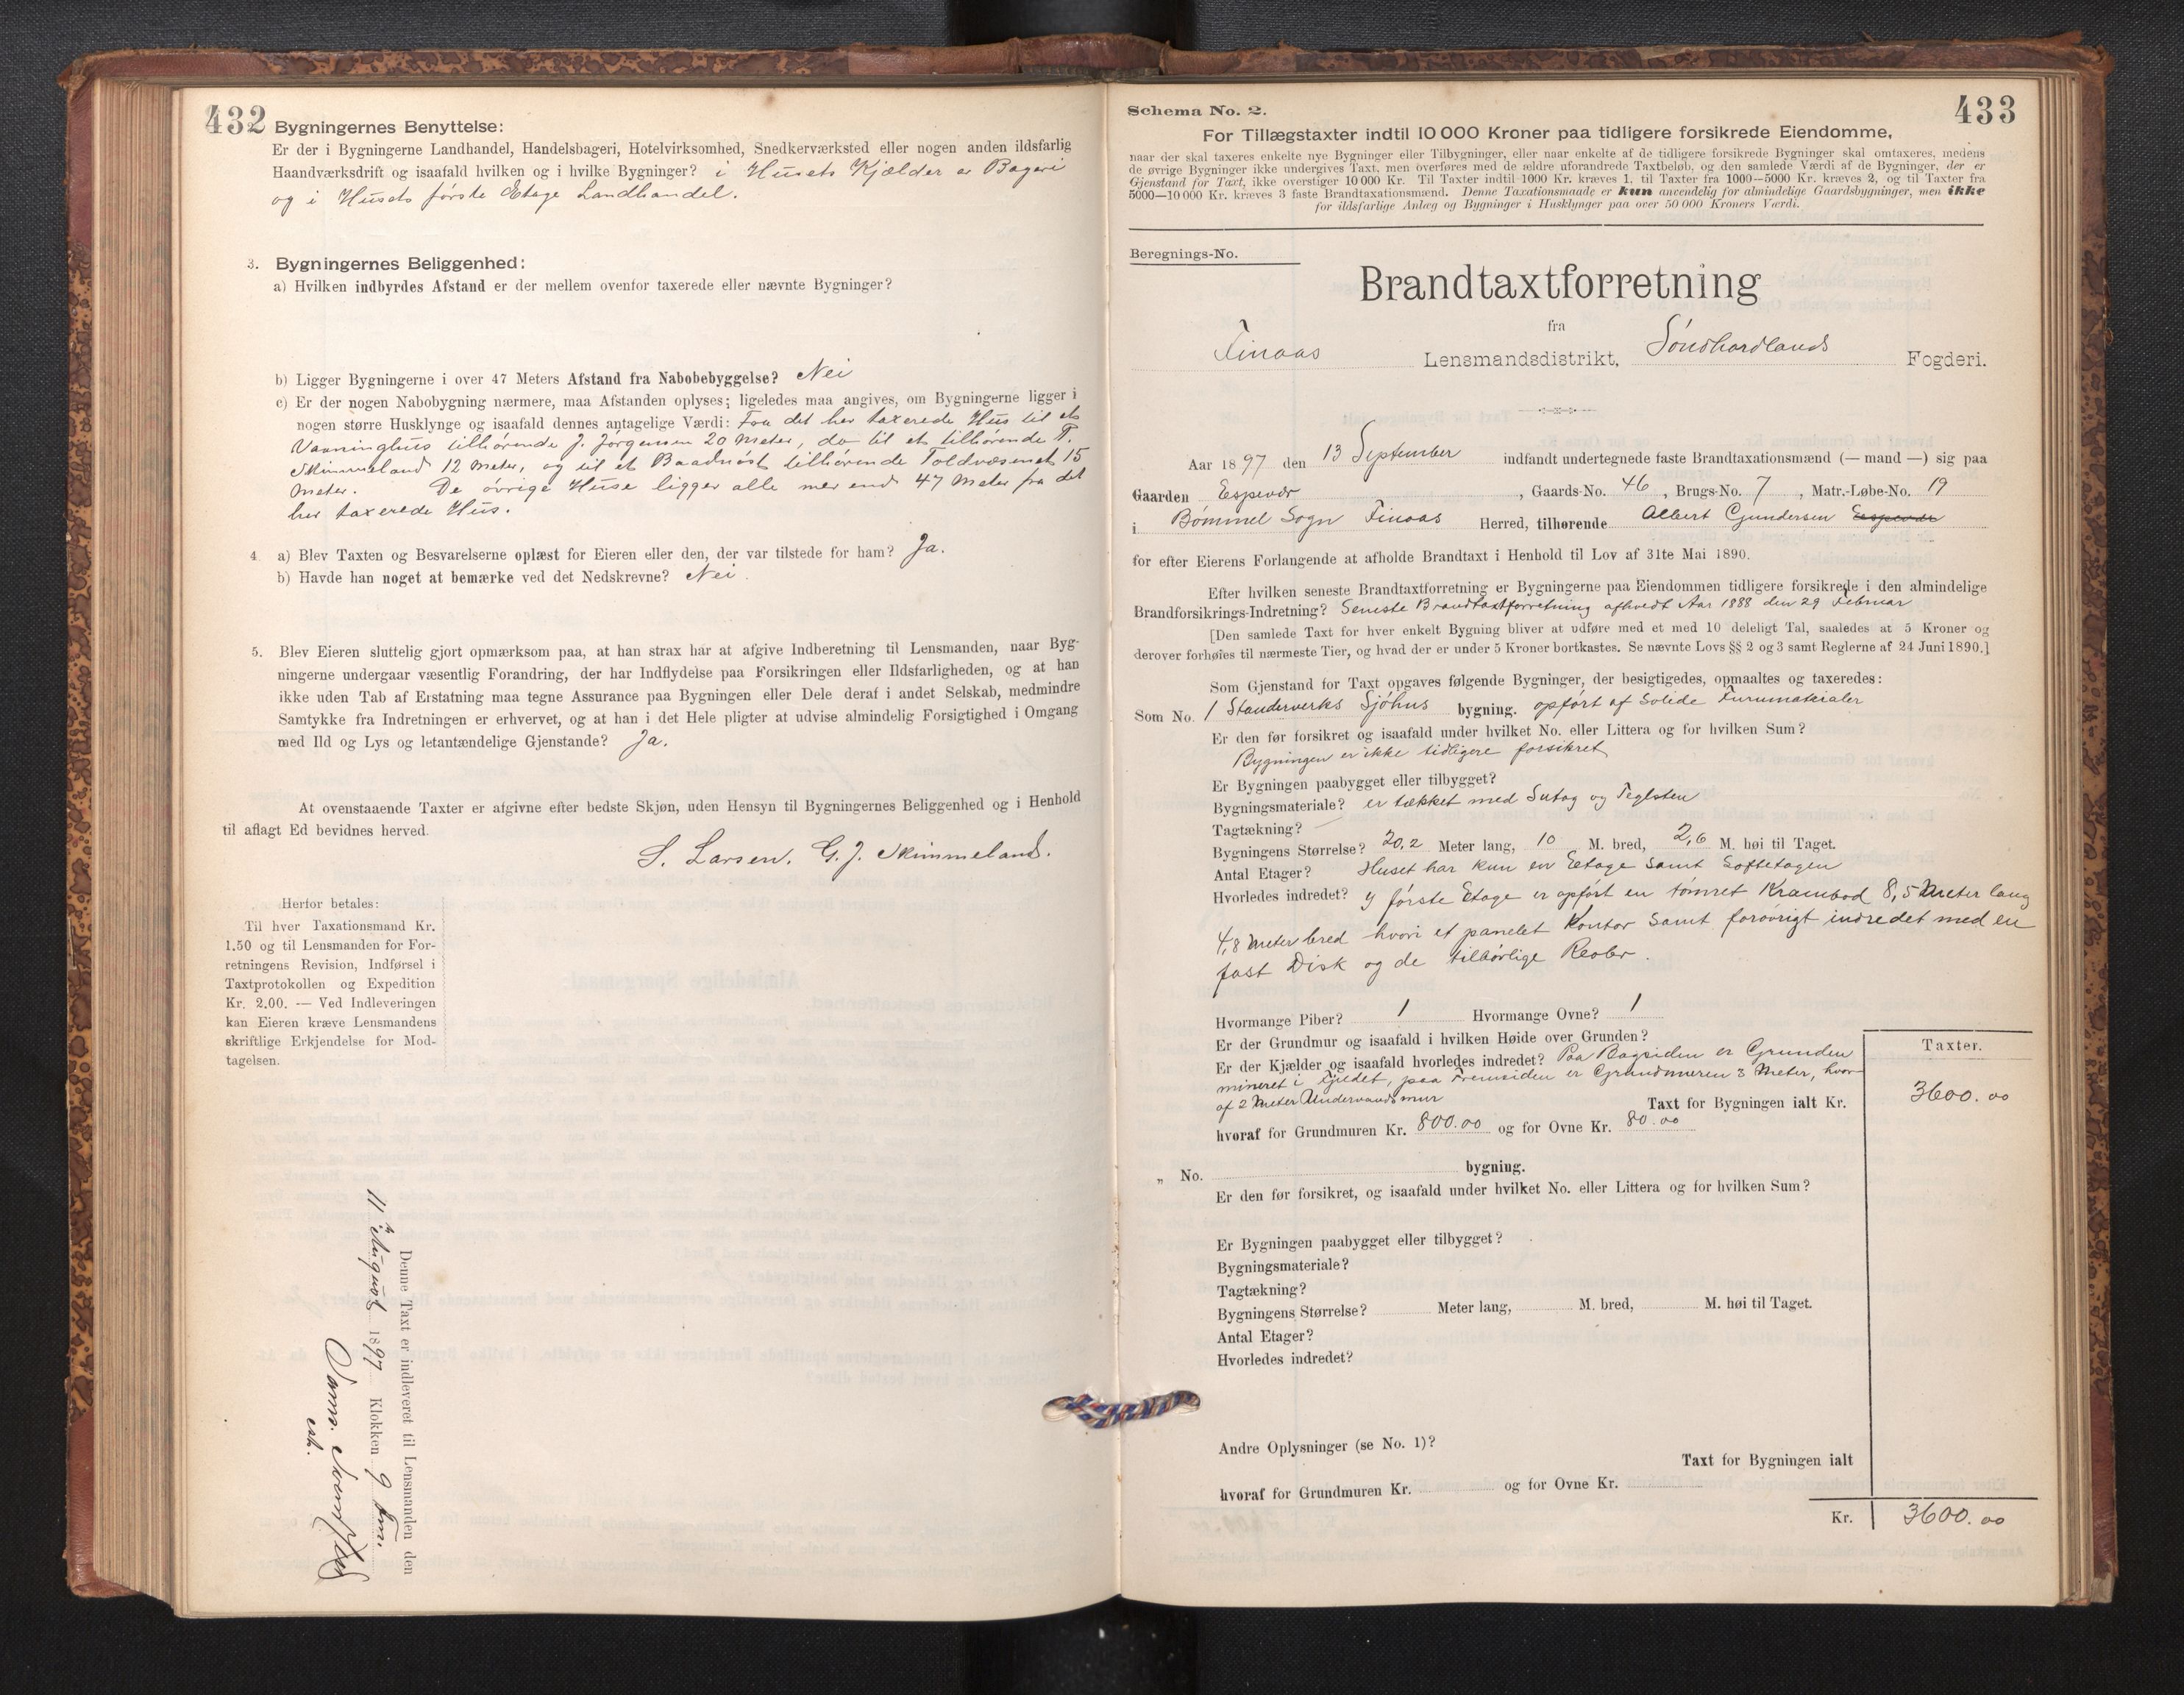 432
Bygningernes Benyttelse:
Er der i Bygningerne Landhandel, Handelsbageri, Hotelvirksomhed, Snedkerværksted eller nogen anden ildsfarlig
Haandværksdrift og isaafald hvilken og i hvilke Bygninger? i Husets Kjælder er Bageri
og i Husets første Etage Landhandel.
3. Bygningernes Beliggenhed:
a) Hvilken indbyrdes Afstand er der mellem ovenfor taxerede eller nævnte Bygninger?
b) Ligger Bygningerne i over 47 Meters Afstand fra Nabobebyggelse? Nei
c) Er der nogen Nabobygning nærmere, maa Afstanden oplyses; ligeledes maa angives, om Bygningerne ligger i
nogen større Husklynge og isaafald dennes antagelige Værdi: Fra det her taxerede Hus til et
Vaaninghus tilhørende J. Jørgensen 20 Meter, do til et tilhørende T.
Skimmeland 12 Meter, og til et Baadnøst tilhørende Toldvæsenet 15
Meter. De øvrige Huse ligger alle mer end 47 Meter fra det
her taxerede Hus.
4. a) Blev Taxten og Besvarelserne oplæst for Eieren eller den, der var tilstede for ham? Ja.
b) Havde han noget at bemærke ved det Nedskrevne? Nei.
5. Blev Eieren sluttelig gjort opmærksom paa, at han strax har at afgive Indberetning til Lensmanden, naar Byg-
ningerne undergaar væsentlig Forandring, der har Indflydelse paa Forsikringen eller Ildsfarligheden, og at han
ikke uden Tab af Erstatning maa tegne Assurance paa Bygningen eller Dele deraf i andet Selskab, medmindre
Samtykke fra Indretningen er erhvervet, og at han i det Hele pligter at udvise almindelig Forsigtighed i Omgang
med Ild og Lys og letantændelige Gjenstande? Ja.
At ovenstaaende Taxter er afgivne efter bedste Skjøn, uden Hensyn til Bygningernes Beliggenhed og i Henhold
til aflagt Ed bevidnes herved.
S. Larsen. G. J. Skimmeland.
Herfor betales:
Til hver Taxationsmand Kr.
1.50 og til Lensmanden for For-
retningens Revision, Indførsel i
Taxtprotokollen og Expedition
Kr. 2.00. — Ved Indleveringen
kan Eieren kræve Lensmandens
skriftlige Erkjendelse for Mod-
tagelsen.
Denne Taxt er indleveret til Lensmanden den
11te August 1897 Klokken 9 Fm.
433
Schema No. 2.
For Tillægstaxter indtil 10 000 Kroner paa tidligere forsikrede Eiendomme,
naar der skal taxeres enkelte nye Bygninger eller Tilbygninger, eller naar enkelte af de tidligere forsikrede Bygninger skal omtaxeres, medens
de øvrige Bygninger ikke undergives Taxt, men overføres med de ældre uforandrede Taxtbeløb, og den samlede Værdi af de Bygninger, der er
Gjenstand for Taxt, ikke overstiger 10 000 Kr. Til Taxter indtil 1000 Kr. kræves 1, til Taxter fra 1000—5000 Kr. kræves 2, og til Taxter fra
5000—10 000 Kr. kræves 3 faste Brandtaxationsmænd. Denne Taxationsmaade er kun anvendelig for almindelige Gaardsbygninger, men ikke
for ildsfarlige Anlæg og Bygninger i Husklynger paa over 50 000 Kroners Værdi.
Beregnings-No.
Brandtaxtforretning
fra
Finaas Lensmandsdistrikt, Søndhordlands Fogderi.
Aar 1897 den 13 September indfandt undertegnede faste Brandtaxationsmænd (— mand —) sig paa
Gaarden Espevær, Gaards-No. 46, Brugs-No. 7, Matr.-Løbe-No. 19
i Bømmel Sogn Finaas Herred, tilhørende Albert Gundersen Espevær
for efter Eierens Forlangende at afholde Brandtaxt i Henhold til Lov af 31te Mai 1890.
Efter hvilken seneste Brandtaxtforretning er Bygningerne paa Eiendommen tidligere forsikrede i den almindelige
Brandforsikrings-Indretning? Seneste Brandtaxtforretning afholdt Aar 1888 den 29 Februar
[Den samlede Taxt for hver enkelt Bygning bliver at udføre med et med 10 deleligt Tal, saaledes at 5 Kroner og
derover forhøies til nærmeste Tier, og hvad der er under 5 Kroner bortkastes. Se nævnte Lovs §§ 2 og 3 samt Reglerne af 24 Juni 1890.]
Som Gjenstand for Taxt opgaves følgende Bygninger, der besigtigedes, opmaaltes og taxeredes:
Som No. 1 Standerverks Sjøhus bygning. opført af Solide Furumaterialer
Er den før forsikret og isaafald under hvilket No. eller Littera og for hvilken Sum?
Bygningen er ikke tidligere forsikret
Er Bygningen paabygget eller tilbygget?
Bygningsmateriale? er tækket med Sutag og Teglsten
Tagtækning?
Bygningens Størrelse? 20,2 Meter lang, 10 M. bred, 2,6 M. høi til Taget.
Antal Etager? Huset har kun en Etage samt Loftetagen
Hvorledes indredet? I første Etage er opført en tømret Krambod 8,5 Meter lang
4,8 Meter bred hvori et panelet Kontor samt forøvrigt indredet med en
fast Disk og de tilbørlige Reoler.
Hvormange Piber? 1 Hvormange Ovne? 1
Er der Grundmur og isaafald i hvilken Høide over Grunden?
Er der Kjælder og isaafald hvorledes indredet? Paa Bagsiden er Grunden
mineret i Fjeldet, paa Fremsiden er Grundmuren 3 Meter, hvor-
af 2 Meter Undervandsmur
Taxter.
Taxt for Bygningen ialt Kr. 3600.00
hvoraf for Grundmuren Kr. 800.00 og for Ovne Kr. 80.00
„ No. bygning.
Er den før forsikret, og isaafald under hvilket No. eller Littera og for hvilken Sum?
Er Bygningen paabygget eller tilbygget?
Bygningsmateriale?
Tagtækning?
Bygningens Størrelse? Meter lang, M. bred, M. høi til Taget.
Antal Etager?
Hvorledes indredet?
Andre Oplysninger (se No. 1)?
Taxt for Bygningen ialt
hvoraf for Grundmuren Kr. og for Ovne Kr.
Kr. 3600.00